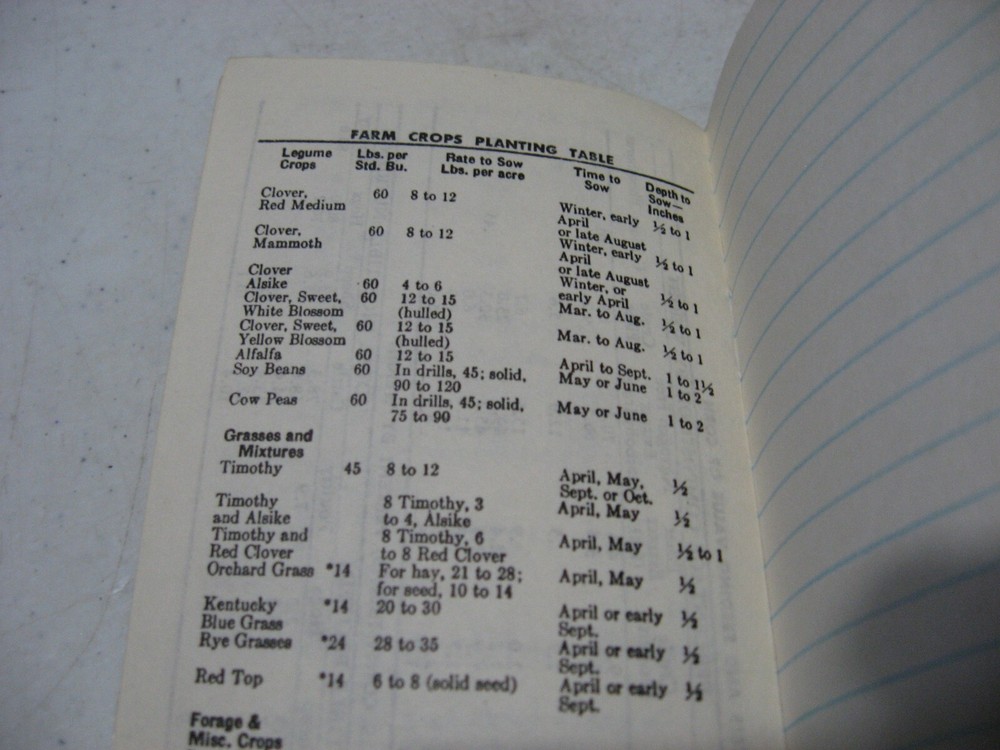 FARM CROPS PLANTING TABLE
Legume Crops Lbs. per Std. Bu. Rate to Sow Lbs. per acre Time to Sow Depth to Sow— Inches
Clover, 60 8 to 12 Winter, early ½ to 1
Red Medium April
or late August
Clover, 60 8 to 12 Winter, early ½ to 1
Mammoth April
or late August
Clover Winter, or
Alsike 60 4 to 6 early April ½ to 1
Clover, Sweet, 60 12 to 15 Mar. to Aug. ½ to 1
White Blossom (hulled)
Clover, Sweet, 60 12 to 15 Mar. to Aug. ½ to 1
Yellow Blossom (hulled)
Alfalfa 60 12 to 15 April to Sept. 1 to 1½
Soy Beans 60 In drills, 45; solid, May or June 1 to 2
90 to 120
Cow Peas 60 In drills, 45; solid, May or June 1 to 2
75 to 90
Grasses and
Mixtures
Timothy 45 8 to 12 April, May, ½
Sept. or Oct.
Timothy 8 Timothy, 3 April, May ½
and Alsike to 4, Alsike
Timothy and 8 Timothy, 6 April, May ½ to 1
Red Clover to 8 Red Clover
Orchard Grass *14 For hay, 21 to 28; April, May ½
for seed, 10 to 14
Kentucky *14 20 to 30 April or early ½
Blue Grass Sept.
Rye Grasses *24 28 to 35 April or early ½
Sept.
Red Top *14 6 to 8 (solid seed) April or early ½
Sept.
Forage &
Misc. Crops